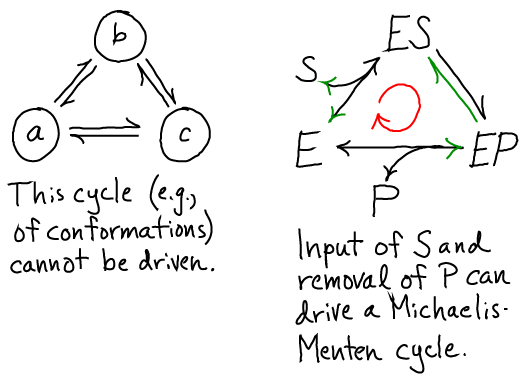 b
a
c
This cycle (e.g.,
of conformations)
cannot be driven.
ES
S
E
EP
P
Input of S and
removal of P can
drive a Michaelis-
Menten cycle.